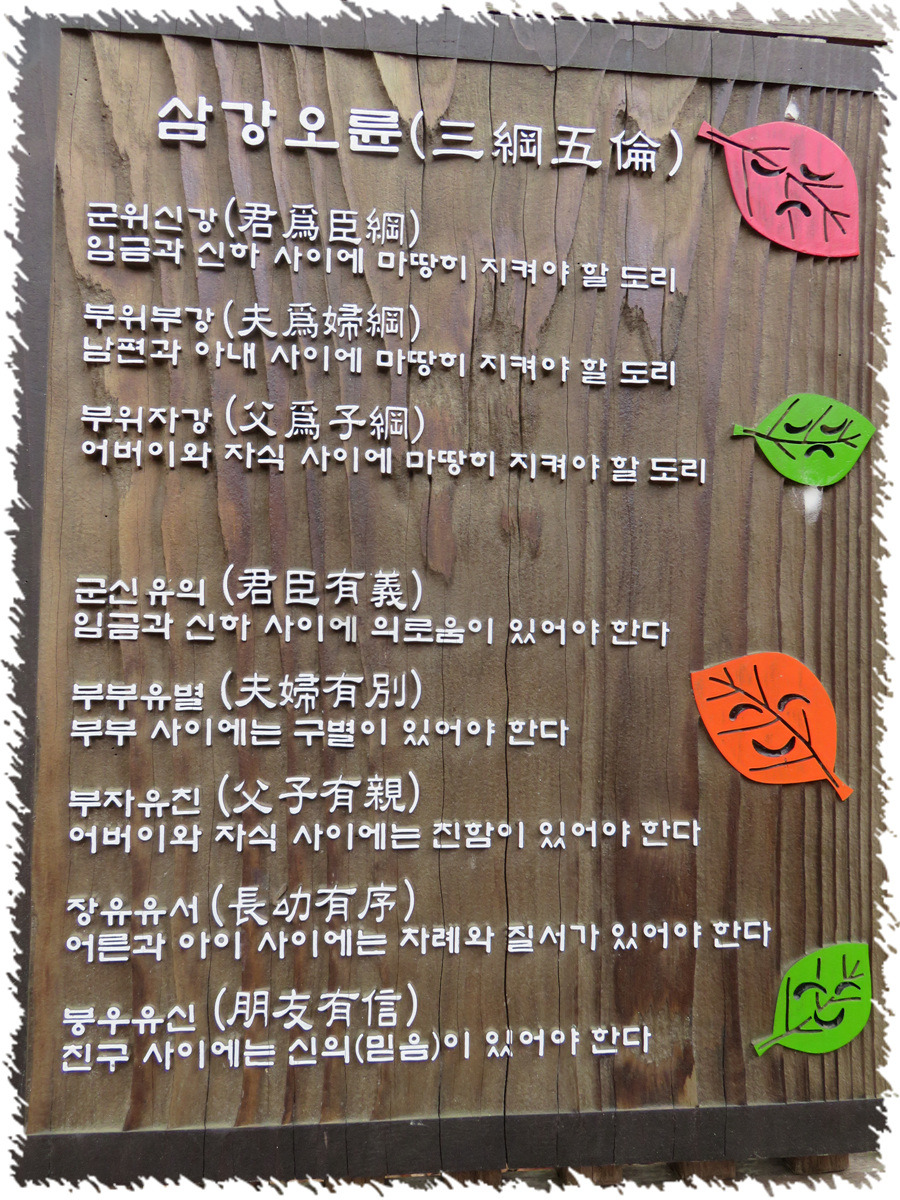 삼강오륜(三綱五倫)
군위신강(君爲臣綱)
임금과 신하 사이에 마땅히 지켜야 할 도리
부위부강(夫爲婦綱)
남편과 아내 사이에 마땅히 지켜야 할 도리
부위자강 (父爲子綱)
어버이와 자식 사이에 마땅히 지켜야 할 도리
군신유의 (君臣有義)
임금과 신하 사이에 의로움이 있어야 한다
부부유별 (夫婦有別)
부부 사이에는 구별이 있어야 한다
부자유친 (父子有親)
어버이와 자식 사이에는 친함이 있어야 한다
장유유서(長幼有序)
어른과 아이 사이에는 차례와 질서가 있어야 한다
붕우유신 (朋友有信)
친구 사이에는 신의(믿음)이 있어야 한다